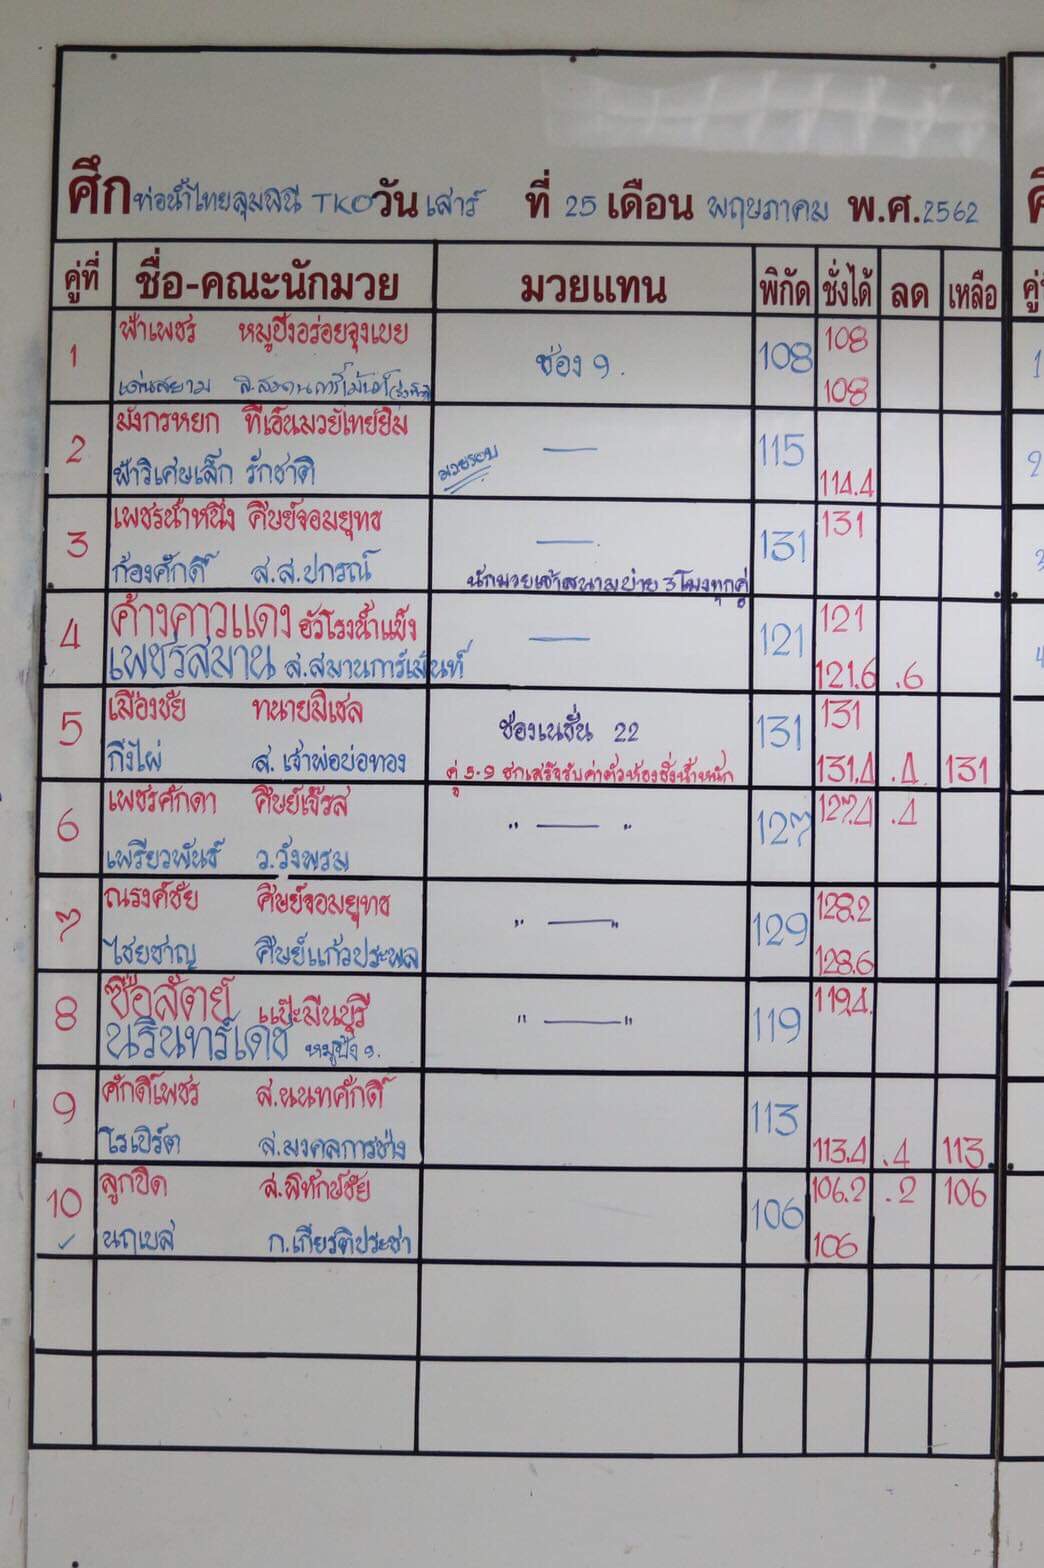 ศึก ท่อน้ำไทยลุมพินี TKO วัน เสาร์ ที่ 25 เดือน พฤษภาคม พ.ศ. 2562
คู่ที่ ชื่อ-คณะนักมวย มวยแทน พิกัด ชั่งได้ ลด เหลือ
1 ฟ้าเพชร หมูปิ้งอร่อยจุงเบย ช่อง 9. 108 108
เด่นสยาม 108
2 มังกรหยก ทีเอ็นมวยไทยยิม — 115
ฟ้าวิเศษเล็ก รักชาติ มวยรอบ 114.4
3 เพชรน้ำหนึ่ง ศิษย์จอมยุทธ — 131 131
ก้องศักดิ์ ส.ส.ปกรณ์ นักมวยเข้าสนามบ่าย 3 โมงทุกคู่
4 ค้างคาวแดง ฮั่วโรงน้ำแข็ง — 121 121
เพชรสมาน ส.สมานการ์เม้นท์ 121.6 .6
5 เมืองชัย ทนายสิเชล ช่องเนชั่น 22 131 131
กิ่งไผ่ ส.เจ้าพ่อบ่อทอง คู่ 5-9 ชกเสร็จรับค่าตั๋วห้องชั่งน้ำหนัก 131.4 .4 131
6 เพชรศักดา ศิษย์เจ๊รส " — " 127 127.4 .4
เพรียวพันธ์ ว.วังพรม
7 ณรงค์ชัย ศิษย์จอมยุทธ " — " 129 128.2
ไชยชาญ ศิษย์แก้วประพล 128.6
8 ซื่อสัตย์ แป๊ะมีนบุรี " — " 119 119.4
นรินทร์เดช หมูปิ้ง อ.
9 ศักดิ์เพชร ส.นนทศักดิ์ 113
โรเบิร์ต ส.มงคลการช่าง 113.4 .4 113
10 ลูกปัด ส.พิทักษ์ชัย 106 106.2 .2 106
นฤเบส ก.เกียรติประชา 106